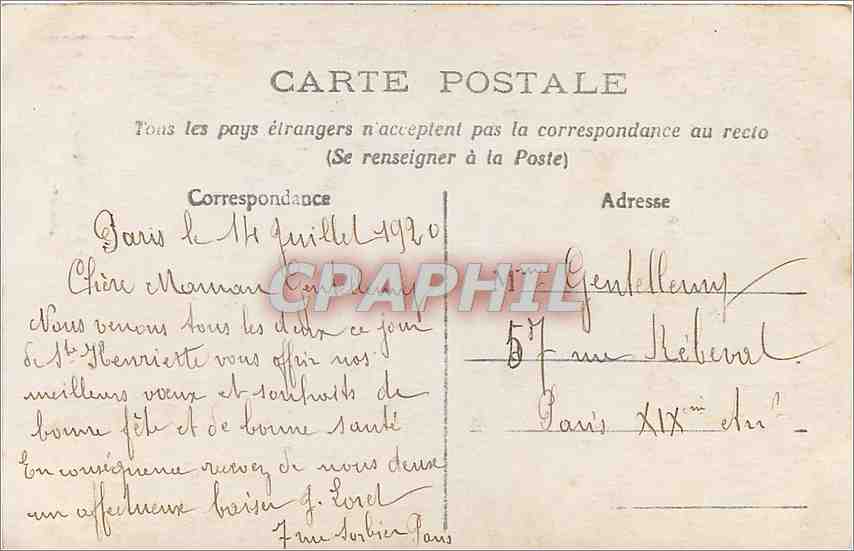 CARTE POSTALE
Tous les pays étrangers n'acceptent pas la correspondance au recto
(Se renseigner à la Poste)
Correspondance
Paris le 14 Juillet 1920
Chère Maman
CPARHIL
Nous venons tous les deux ce jour
de Ste Henriette vous offrir nos
meilleurs vœux et souhaits de
bonne fête et de bonne santé
En conséquence recevez de nous deux
un affectueux baiser G. Loret
7 rue Sorbier Paris
Adresse
Mme Gentelleny
57 rue Rébeval
Paris XIXme Arrt